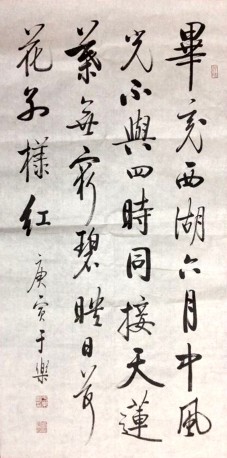 畢竟西湖六月中風
光不與四時同接天蓮
葉無窮碧映日荷
花別樣紅
庚寅于樂